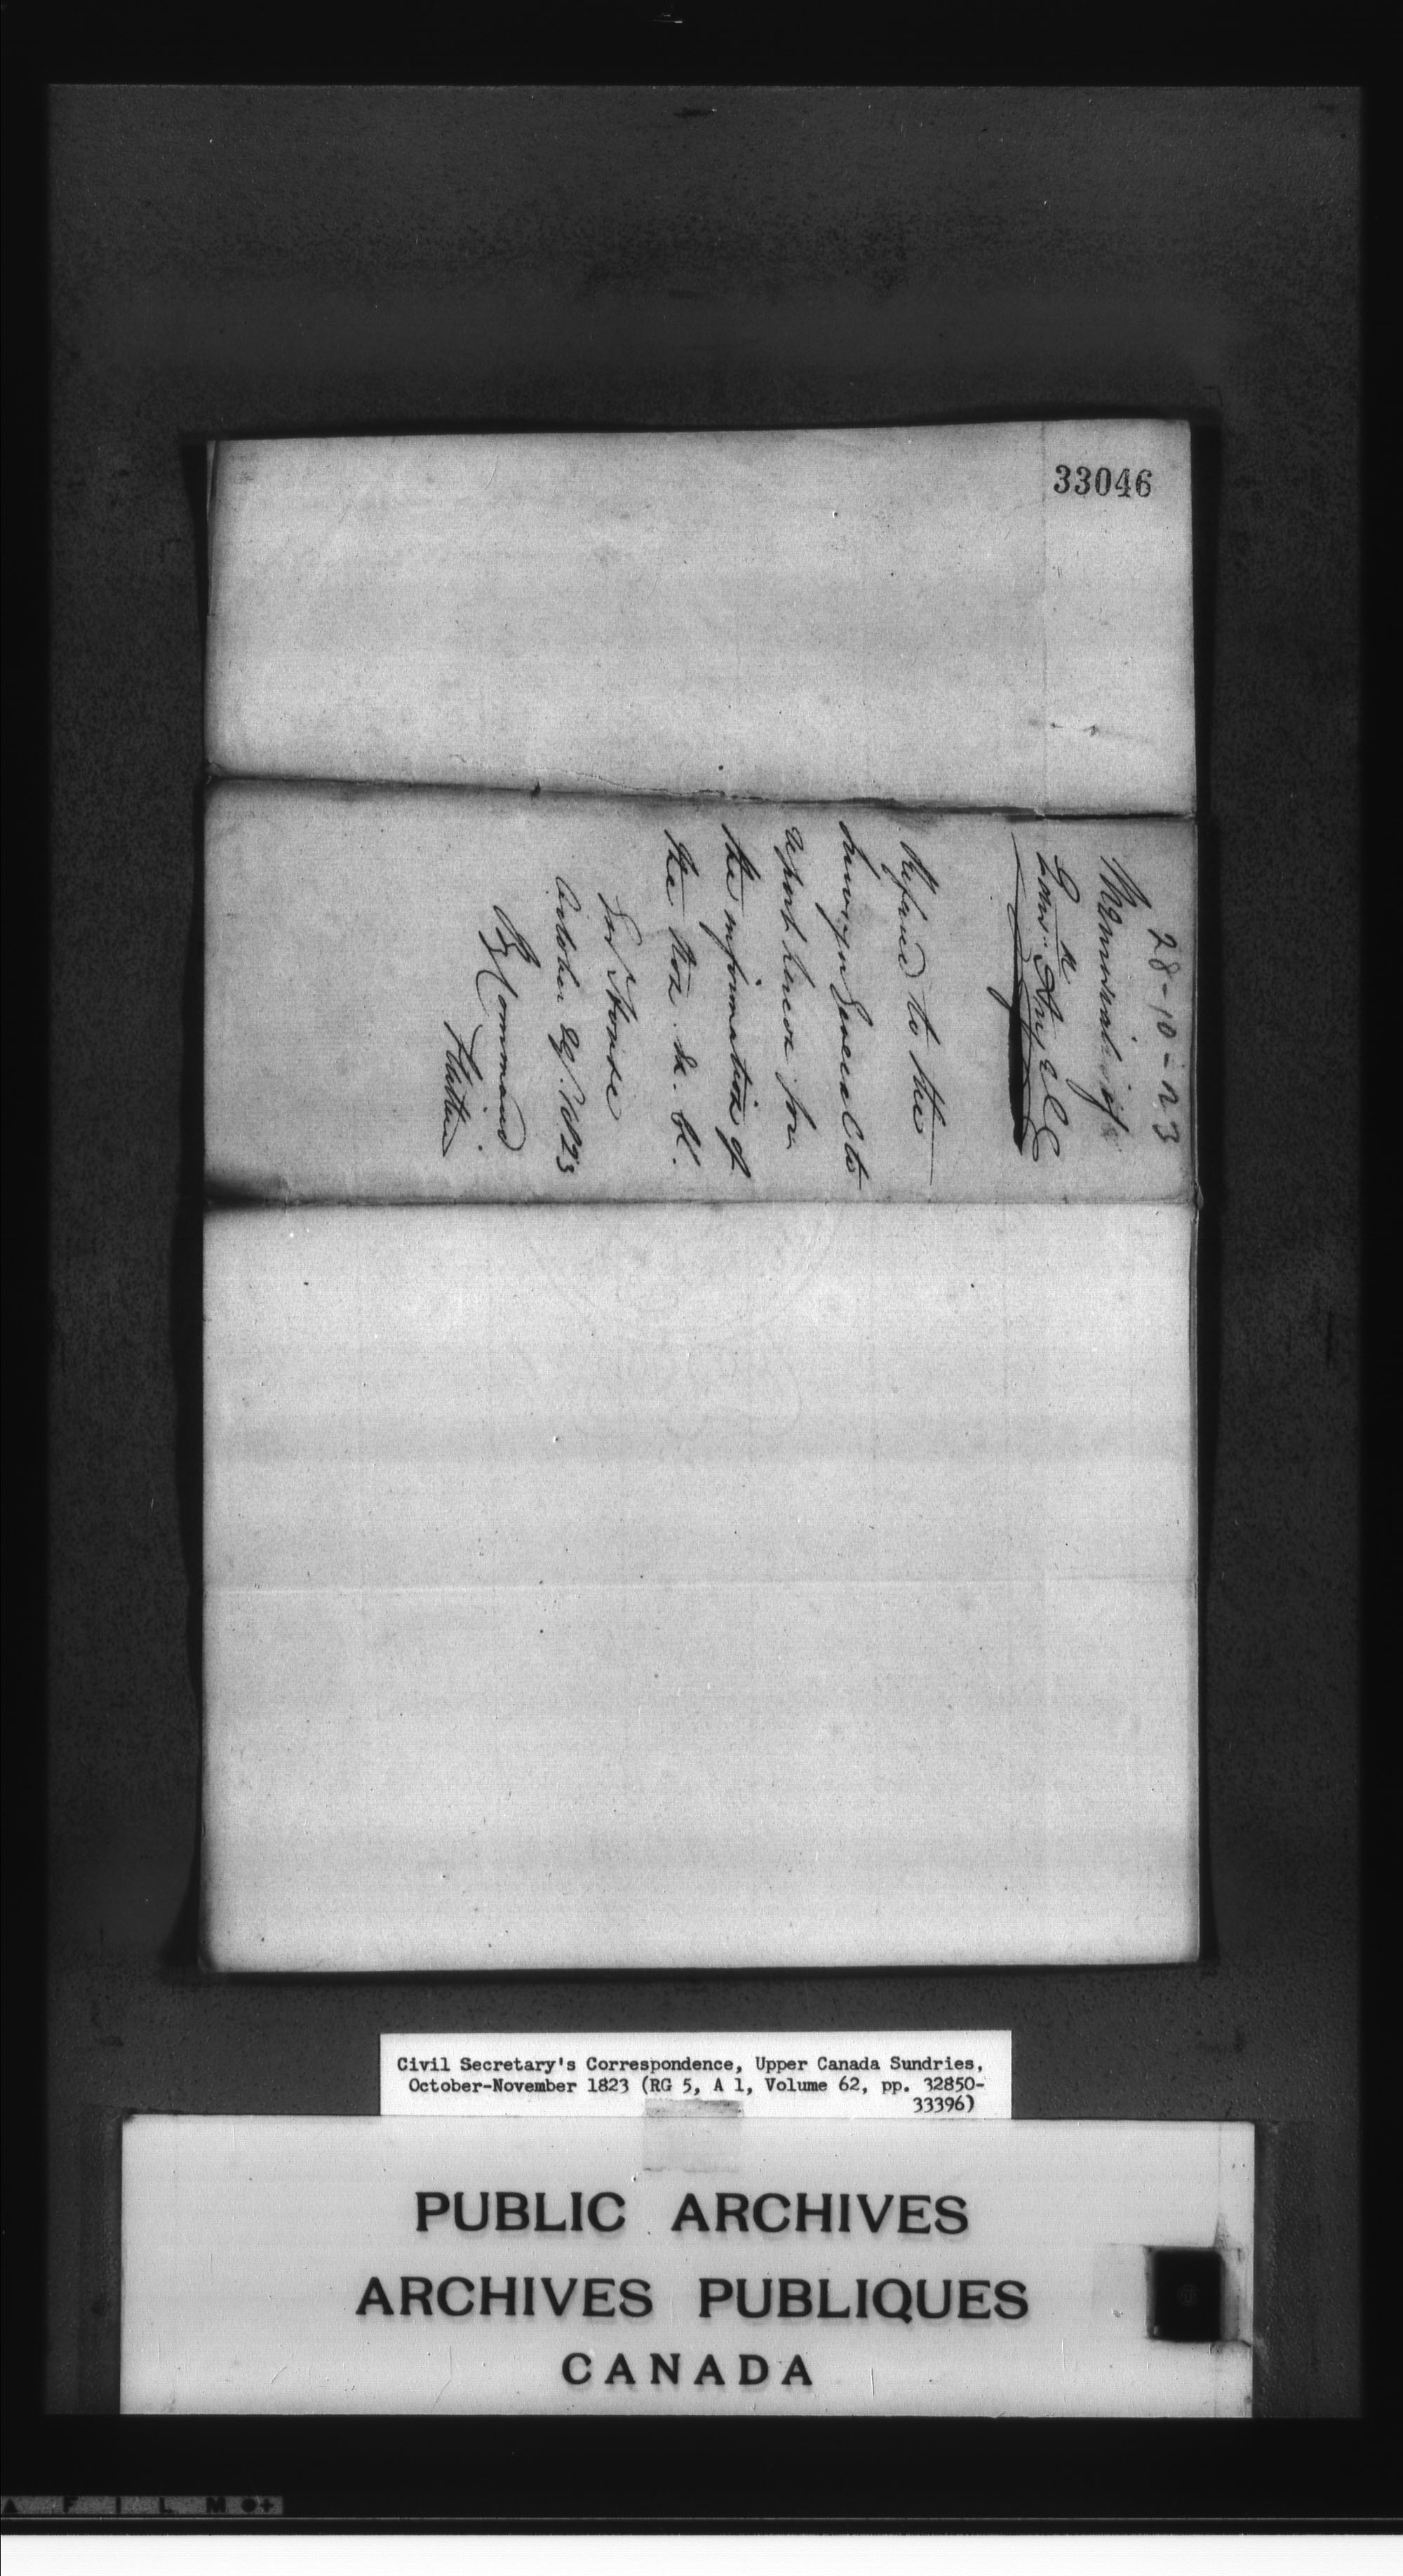 33046
28-10-23
Memorial of
Lawce. Angel
Referred to the
Surveyor General to
report hereon for
the information of
the Hon. Ex. Cl.
Gov't House
October 29th 1823
By Command
Civil Secretary's Correspondence, Upper Canada Sundries,
October-November 1823 (RG 5, A 1, Volume 62, pp. 32850-
33396)
PUBLIC ARCHIVES
ARCHIVES PUBLIQUES
CANADA